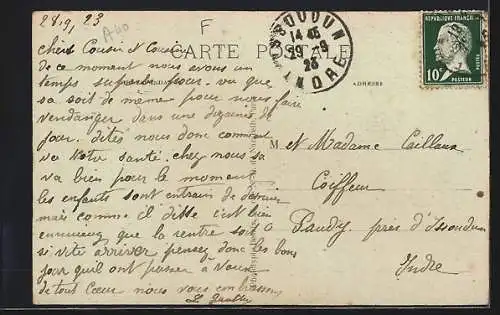 28, 9, 23
A40
F
CARTE POSTALE
ISSOUDUN
14 45
29 - 9
23
INDRE
REPUBLIQUE FRANÇAISE
10c
PASTEUR
POSTES
ADRESSE
Chers Cousin et Cousine
de ce moment nous avons un
temps superbe pour vu que
sa soit de même pour nous faire
vendanger dans une dizaine de
jour. dites nous donc comment
va votre santé. chez nous sa
va bien pour le moment
les enfants sont entrain de
mais comme il disse c'est bien
ennuieux que la rentre soit
si vite arriver pensez donc les bons
jour qu'il ont passer à Vous
de tout Cœur nous vous embrassons
M. et Madame Caillaux
Coiffeur
Paudy près d'Issoudun
Indre